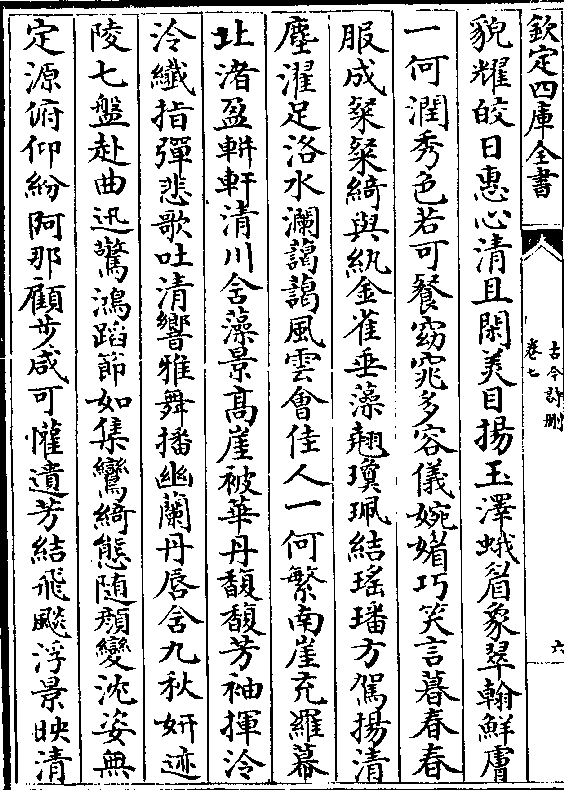 欽定四庫全書
古今詩刪
卷七
六
貌耀皎日惠心清且閑美目揚玉澤蛾眉象翠翰鮮膚
一何潤秀色若可餐窈窕多容儀婉媚巧笑言暮春春
服成粲粲綺與紈金雀垂藻翹瓊珮結瑤璠方駕揚清
塵濯足洛水瀾藹藹風雲會佳人一何繁南崖充羅幕
北渚盈軿軒清川含藻景高崖被華丹馥馥芳袖揮泠
泠纖指彈悲歌吐清響雅舞播幽蘭丹唇含九秋妍迹
陵七盤赴曲迅驚鴻蹈節如集鸞綺態隨顏變沈姿無
定源俯仰紛阿那顧步咸可懽遺芳結飛飈浮景映清